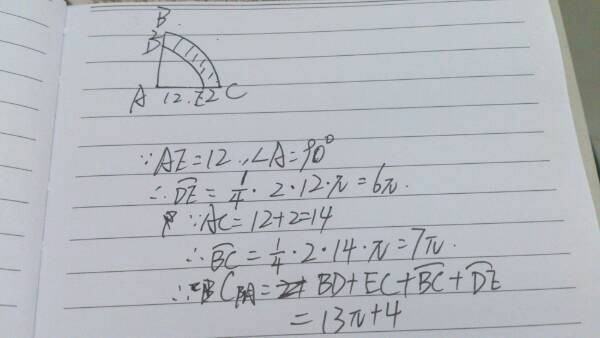 B
D
A 12 E 2 C
∵ AE = 12, ∠A = 90°
∴ D͡E = 1/4 · 2 · 12 · π = 6π.
∵ AC = 12+2=14
∴ B͡C = 1/4 · 2 · 14 · π = 7π.
∴ C阴 = BD + EC + B͡C + D͡E
= 13π+4